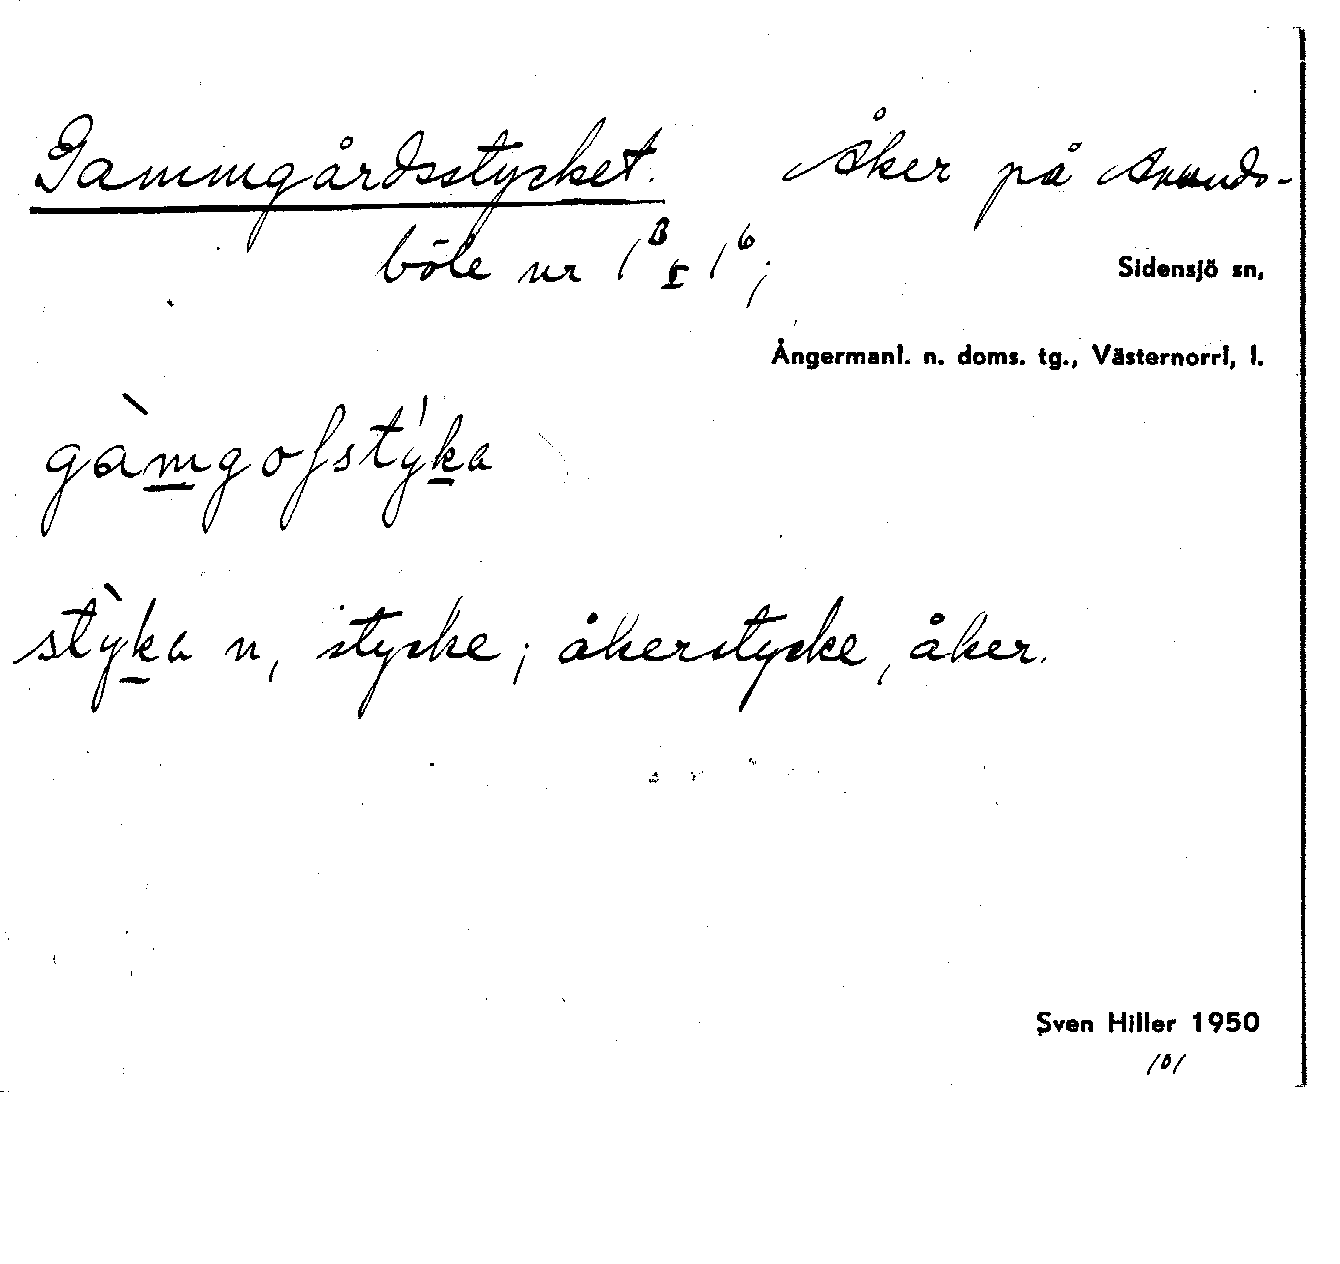 Gammgårdsstycket. Åker på Anunds-
böle nr 1³ o. 1⁶;
Sidensjö sn,
Ångermanl. n. doms. tg., Västernorrl, l.
gàm̲gofstýk̲a
stỳk̲a n, stycke; åkerstycke, åker.
Sven Hiller 1950
101